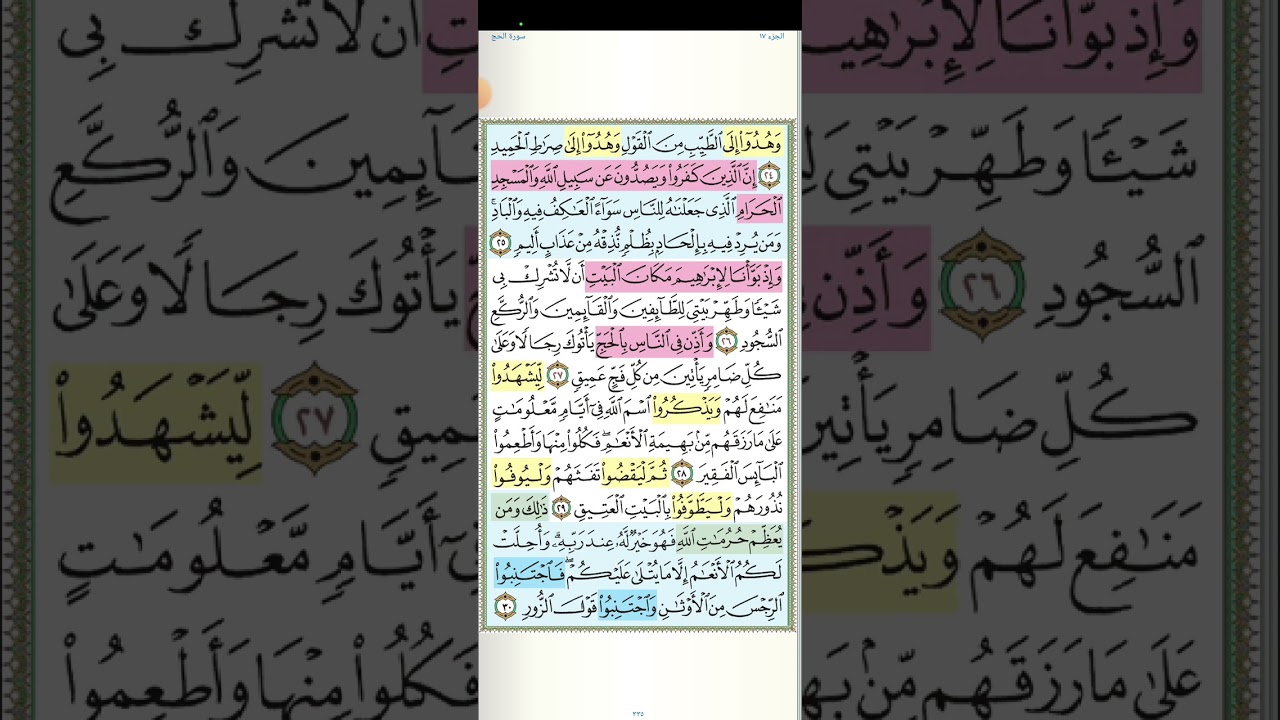 الجزء ١٧
سورة الحج
وَهُدُوٓا۟ إِلَى ٱلطَّيِّبِ مِنَ ٱلْقَوْلِ وَهُدُوٓا۟ إِلَىٰ صِرَٰطِ ٱلْحَمِيدِ
٢٤ إِنَّ ٱلَّذِينَ كَفَرُوا۟ وَيَصُدُّونَ عَن سَبِيلِ ٱللَّهِ وَٱلْمَسْجِدِ
ٱلْحَرَامِ ٱلَّذِى جَعَلْنَٰهُ لِلنَّاسِ سَوَآءً ٱلْعَٰكِفُ فِيهِ وَٱلْبَادِ ۚ
وَمَن يُرِدْ فِيهِ بِإِلْحَادٍۭ بِظُلْمٍ نُّذِقْهُ مِنْ عَذَابٍ أَلِيمٍ ٢٥
وَإِذْ بَوَّأْنَا لِإِبْرَٰهِيمَ مَكَانَ ٱلْبَيْتِ أَن لَّا تُشْرِكْ بِى
شَيْـًٔا وَطَهِّرْ بَيْتِىَ لِلطَّآئِفِينَ وَٱلْقَآئِمِينَ وَٱلرُّكَّعِ
ٱلسُّجُودِ ٢٦ وَأَذِّن فِى ٱلنَّاسِ بِٱلْحَجِّ يَأْتُوكَ رِجَالًا وَعَلَىٰ
كُلِّ ضَامِرٍ يَأْتِينَ مِن كُلِّ فَجٍّ عَمِيقٍ ٢٧ لِّيَشْهَدُوا۟
مَنَٰفِعَ لَهُمْ وَيَذْكُرُوا۟ ٱسْمَ ٱللَّهِ فِىٓ أَيَّامٍ مَّعْلُومَٰتٍ
عَلَىٰ مَا رَزَقَهُم مِّنۢ بَهِيمَةِ ٱلْأَنْعَٰمِ ۖ فَكُلُوا۟ مِنْهَا وَأَطْعِمُوا۟
ٱلْبَآئِسَ ٱلْفَقِيرَ ٢٨ ثُمَّ لْيَقْضُوا۟ تَفَثَهُمْ وَلْيُوفُوا۟
نُذُورَهُمْ وَلْيَطَّوَّفُوا۟ بِٱلْبَيْتِ ٱلْعَتِيقِ ٢٩ ذَٰلِكَ وَمَن
يُعَظِّمْ حُرُمَٰتِ ٱللَّهِ فَهُوَ خَيْرٌ لَّهُۥ عِندَ رَبِّهِۦ ۗ وَأُحِلَّتْ
لَكُمُ ٱلْأَنْعَٰمُ إِلَّا مَا يُتْلَىٰ عَلَيْكُمْ ۖ فَٱجْتَنِبُوا۟
ٱلرِّجْسَ مِنَ ٱلْأَوْثَٰنِ وَٱجْتَنِبُوا۟ قَوْلَ ٱلزُّورِ ٣٠
٣٣٥